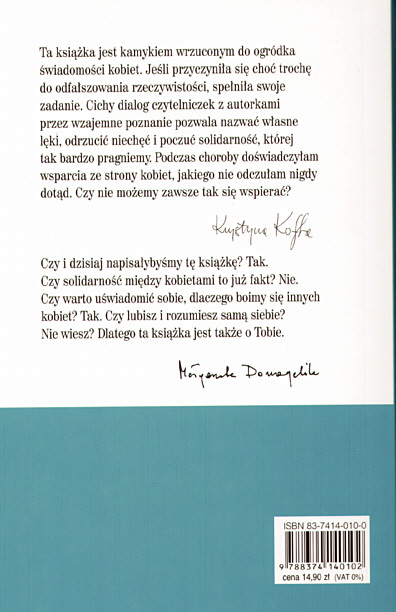 Ta książka jest kamykiem wrzuconym do ogródka
świadomości kobiet. Jeśli przyczyniła się choć trochę
do odfałszowania rzeczywistości, spełniła swoje
zadanie. Cichy dialog czytelniczek z autorkami
przez wzajemne poznanie pozwala nazwać własne
lęki, odrzucić niechęć i poczuć solidarność, której
tak bardzo pragniemy. Podczas choroby doświadczyłam
wsparcia ze strony kobiet, jakiego nie odczułam nigdy
dotąd. Czy nie możemy zawsze tak się wspierać?
Krystyna Kofta
Czy i dzisiaj napisałybyśmy tę książkę? Tak.
Czy solidarność między kobietami to już fakt? Nie.
Czy warto uświadomić sobie, dlaczego boimy się innych
kobiet? Tak. Czy lubisz i rozumiesz samą siebie?
Nie wiesz? Dlatego ta książka jest także o Tobie.
Małgorzata Domagalik
ISBN 83-7414-010-0
9 788374 140102
cena 14,90 zł (VAT 0%)